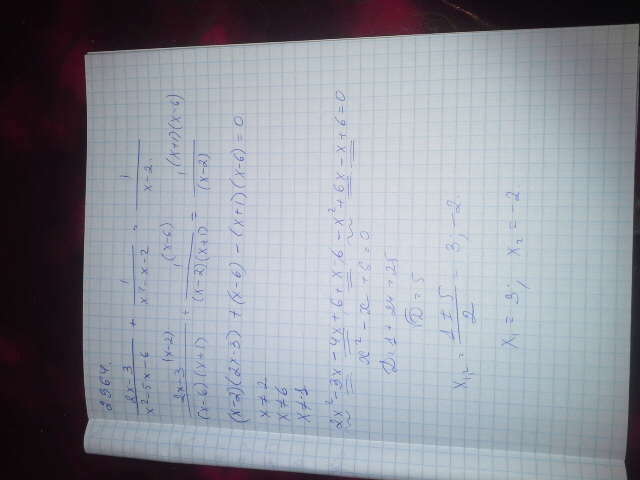 2964.
(2x-3)/(x²-5x-6) + 1/(x²-x-2) = 1/(x-2)
(2x-3)^(x-2)/((x-6)(x+1)) + 1^(x-6)/((x-2)(x+1)) = 1^(x+1)(x-6)/(x-2)
(x-2)(2x-3) + (x-6) - (x+1)(x-6) = 0
x≠2
x≠6
x≠-1
2x²-3x-4x+6+x-6-x²+6x-x+6=0
x²-x+6=0
D=1+24=25
√D=5
x₁,₂ = (1±5)/2 = 3; -2
x₁=3; x₂=-2